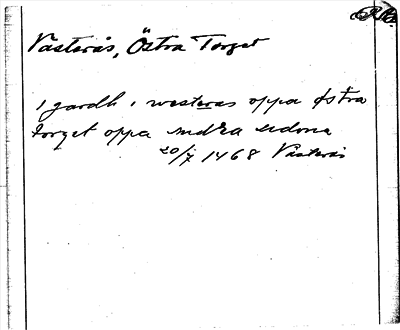 Västerås, Östra Torget
1 gardh i westeras oppa østra
torget oppa nørdra sidona
20/7 1468 Västerås